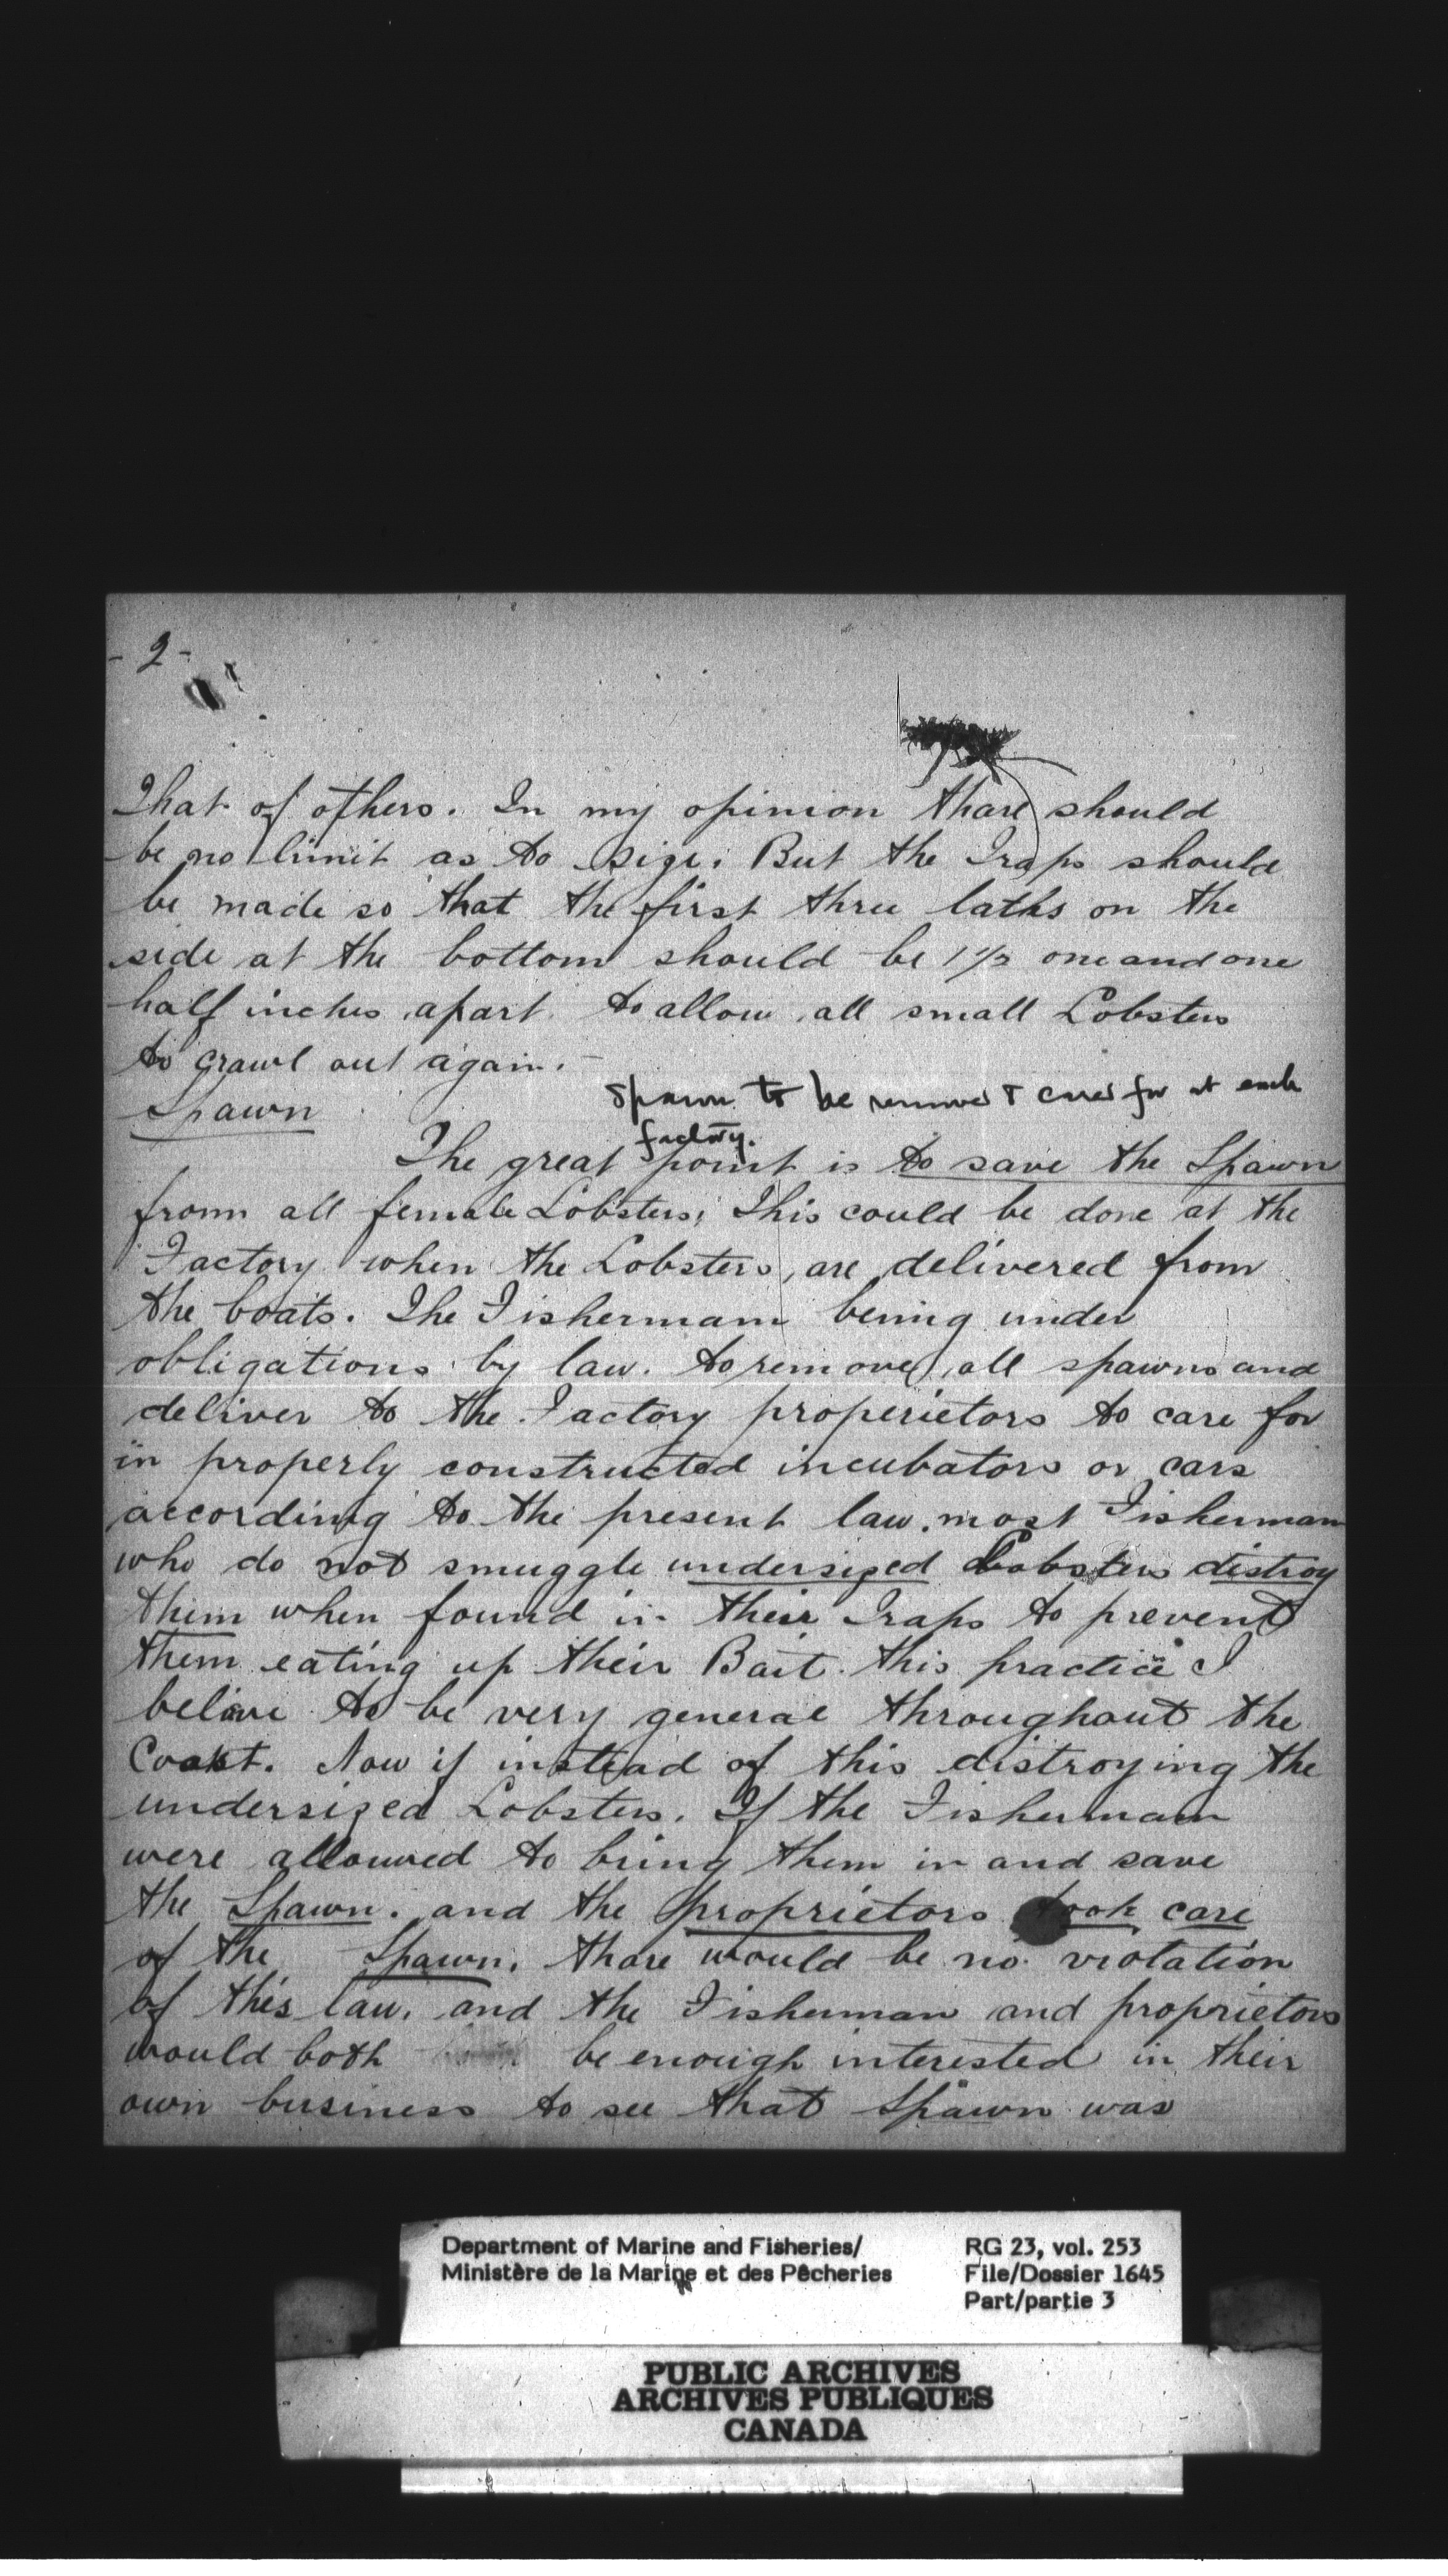 - 2 -
That of others. In my opinion thare should
be no limit as to size. But the Traps should
be made so that the first three laths on the
side at the bottom should be 1 1/2 one and one
half inches apart. to allow all small Lobsters
to crawl out again.
Spawn to be removed & cared for at each
factory.
Spawn
The great point is to save the Spawn
from all female Lobsters; This could be done at the
Factory when the Lobsters, are delivered from
the boats. The Fisherman being under
obligations by law. to remove all spawns and
deliver to the Factory properietors to care for
in properly constructed incubators or cars
according to the present law. most Fisherman
who do not smuggle undersized Lobsters distroy
them when found in their Traps to prevent
them eating up their Bait. this practice I
belive to be very general throughout the
Coast. Now if instead of this distroying the
undersized Lobsters. If the Fisherman
were allouwed to bring them in and save
the Spawn. and the proprietors took care
of the Spawn. thare would be no violation
of this law. and the Fisherman and proprietors
would both be enough interested in their
own business to see that Spawn was
Department of Marine and Fisheries/
Ministère de la Marine et des Pêcheries
RG 23, vol. 253
File/Dossier 1645
Part/partie 3
PUBLIC ARCHIVES
ARCHIVES PUBLIQUES
CANADA